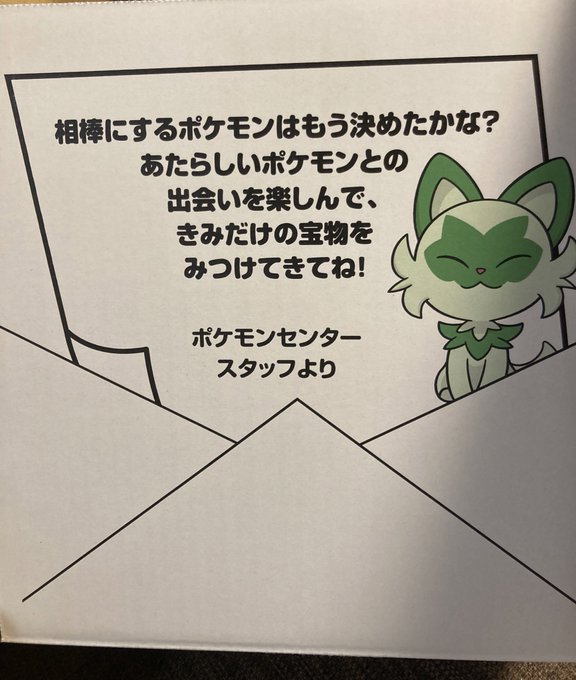 相棒にするポケモンはもう決めたかな?
あたらしいポケモンとの
出会いを楽しんで、
きみだけの宝物を
みつけてきてね!
ポケモンセンター
スタッフより